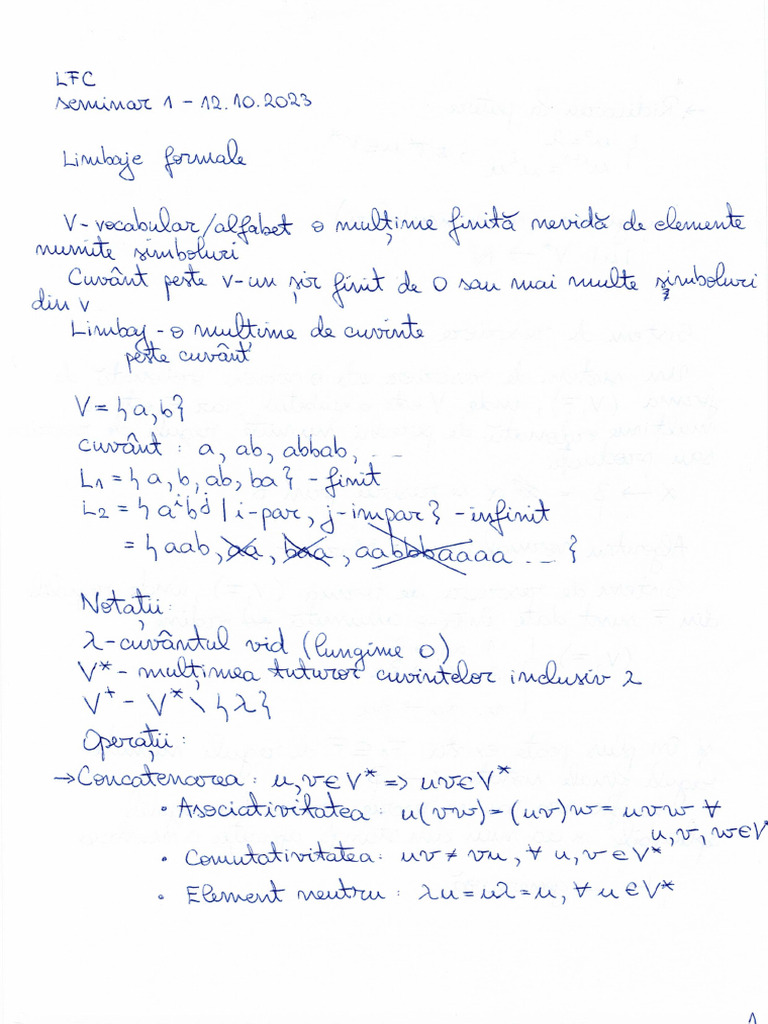 LFC
seminar 1 - 12.10.2023
Limbaje formale
V - vocabular/alfabet o mulțime finită nevidă de elemente
numite simboluri
Cuvânt peste V - un șir finit de 0 sau mai multe simboluri
din V
Limbaj - o multime de cuvinte
peste cuvânt
V = {a, b}
cuvânt : a, ab, abbab, ...
L₁ = {a, b, ab, ba} - finit
L₂ = {aⁱbʲ | i-par, j-impar} - infinit
= {aab, aa, baa, aabbbaaaa ... }
Notații:
λ - cuvântul vid (lungime 0)
V* - mulțimea tuturor cuvintelor inclusiv λ
V⁺ - V* \ {λ}
Operații:
→ Concatenarea : u, v ∈ V* => uv ∈ V*
• Asociativitatea : u(vw) = (uv)w = uvw ∀
u, v, w ∈ V*
• Comutativitatea : uv ≠ vu, ∀ u, v ∈ V*
• Element neutru : λu = uλ = u, ∀ u ∈ V*
1